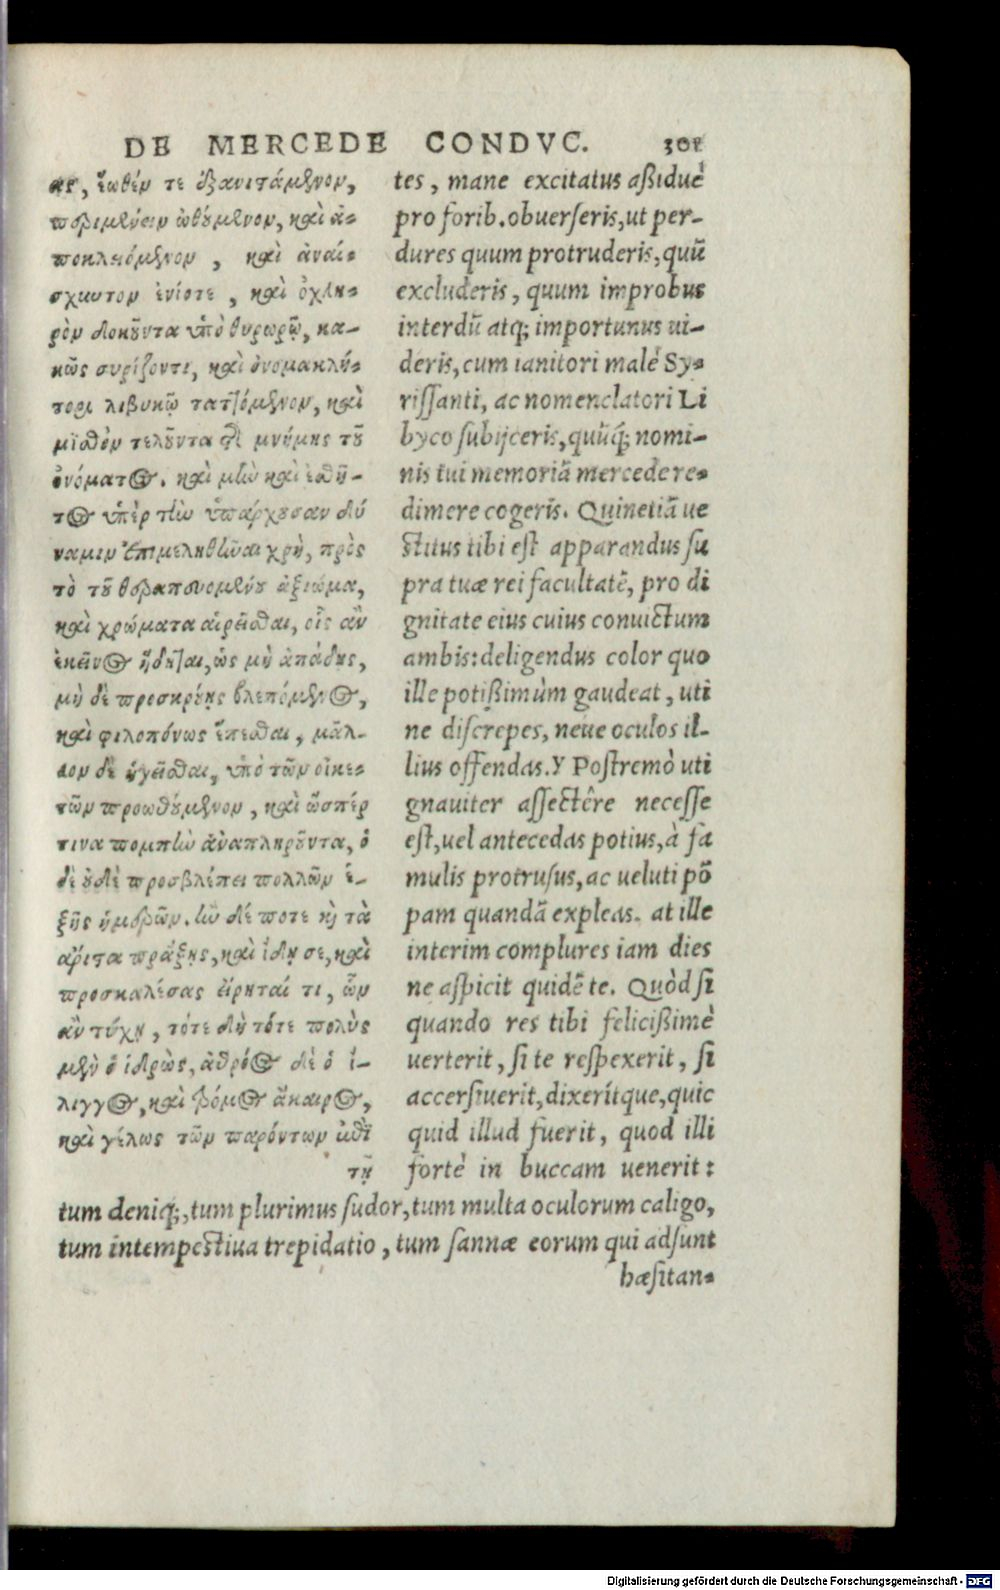 DE MERCEDE CONDVC. 301
ας, ἕωθέν τε ἐξανιστάμενον,
περιμένειν ὠθούμενον, καὶ ἀ-
ποκλειόμενον , καὶ ἀναί-
σχυντον ἐνίοτε , καὶ ὀχλη-
ρὸν δοκοῦντα ὑπὸ θυρωρῷ, κα-
κῶς συρίζοντι, καὶ ὀνομακλή-
τορι λιβυκῷ ταττόμενον, καὶ
μισθὸν τελοῦντα τῆς μνήμης τοῦ
ὀνόματος. καὶ μὴν καὶ ἐσθῆ-
τος ὑπὲρ τὴν ὑπάρχουσαν δύ
ναμιν ἐπιμεληθῆναι χρὴ, πρὸς
τὸ τοῦ θεραπευομένου ἀξίωμα,
καὶ χρώματα αἱρεῖσθαι, οἷς ἂν
ἐκεῖνος ἥδηται, ὡς μὴ ἀπάδῃς,
μὴ δὲ προσκρούῃς βλεπόμενος,
καὶ φιλοπόνως ἕπεσθαι, μᾶλ-
λον δὲ ἡγεῖσθαι, ὑπὸ τῶν οἰκε-
τῶν προωθούμενον , καὶ ὥσπέρ
τινα πομπὴν ἀναπληροῦντα, ὁ
δὲ οὐδὲ προσβλέπει πολλῶν ἑ-
ξῆς ἡμερῶν. ἢν δέ ποτε καὶ τὰ
ἄριστα πράξῃς, καὶ ἴδῃ σε, καὶ
προσκαλέσας εἴρηταί τι, ὧν
ἂν τύχῃ , τότε δὴ τότε πολὺς
μὲν ὁ ἱδρὼς, ἀθρόος δὲ ὁ ἴ-
λιγγος, καὶ τρόμος ἄκαιρος,
καὶ γέλως τῶν παρόντων ἐπὶ
τῇ
tes , mane excitatus aßiduè
pro forib. obuerſeris, ut per-
dures quum protruderis, quū
excluderis , quum improbus
interdū atq; importunus ui-
deris, cum ianitori malè Sy-
riſſanti, ac nomenclatori Li
byco ſubijceris, quūq́; nomi-
nis tui memoriā mercede re-
dimere cogeris. Quinetiā ue
ſtitus tibi eſt apparandus ſu
pra tuæ rei facultatē, pro di
gnitate eius cuius conuictum
ambis: deligendus color quo
ille potißimùm gaudeat , uti
ne diſcrepes, neue oculos il-
lius offendas. Y Poſtremò uti
gnauiter aſſectêre neceſſe
eſt, uel antecedas potius, à fa
mulis protruſus, ac ueluti pō
pam quandā expleas. at ille
interim complures iam dies
ne aſpicit quidē te. Quòd ſi
quando res tibi felicißimè
uerterit , ſi te reſpexerit , ſi
accerſiuerit, dixerítque, quic
quid illud fuerit , quod illi
fortè in buccam uenerit :
tum deniq;, tum plurimus ſudor, tum multa oculorum caligo,
tum intempeſtiua trepidatio , tum ſannæ eorum qui adſunt
hæſitan-
Digitalisierung gefördert durch die Deutsche Forschungsgemeinschaft - DFG